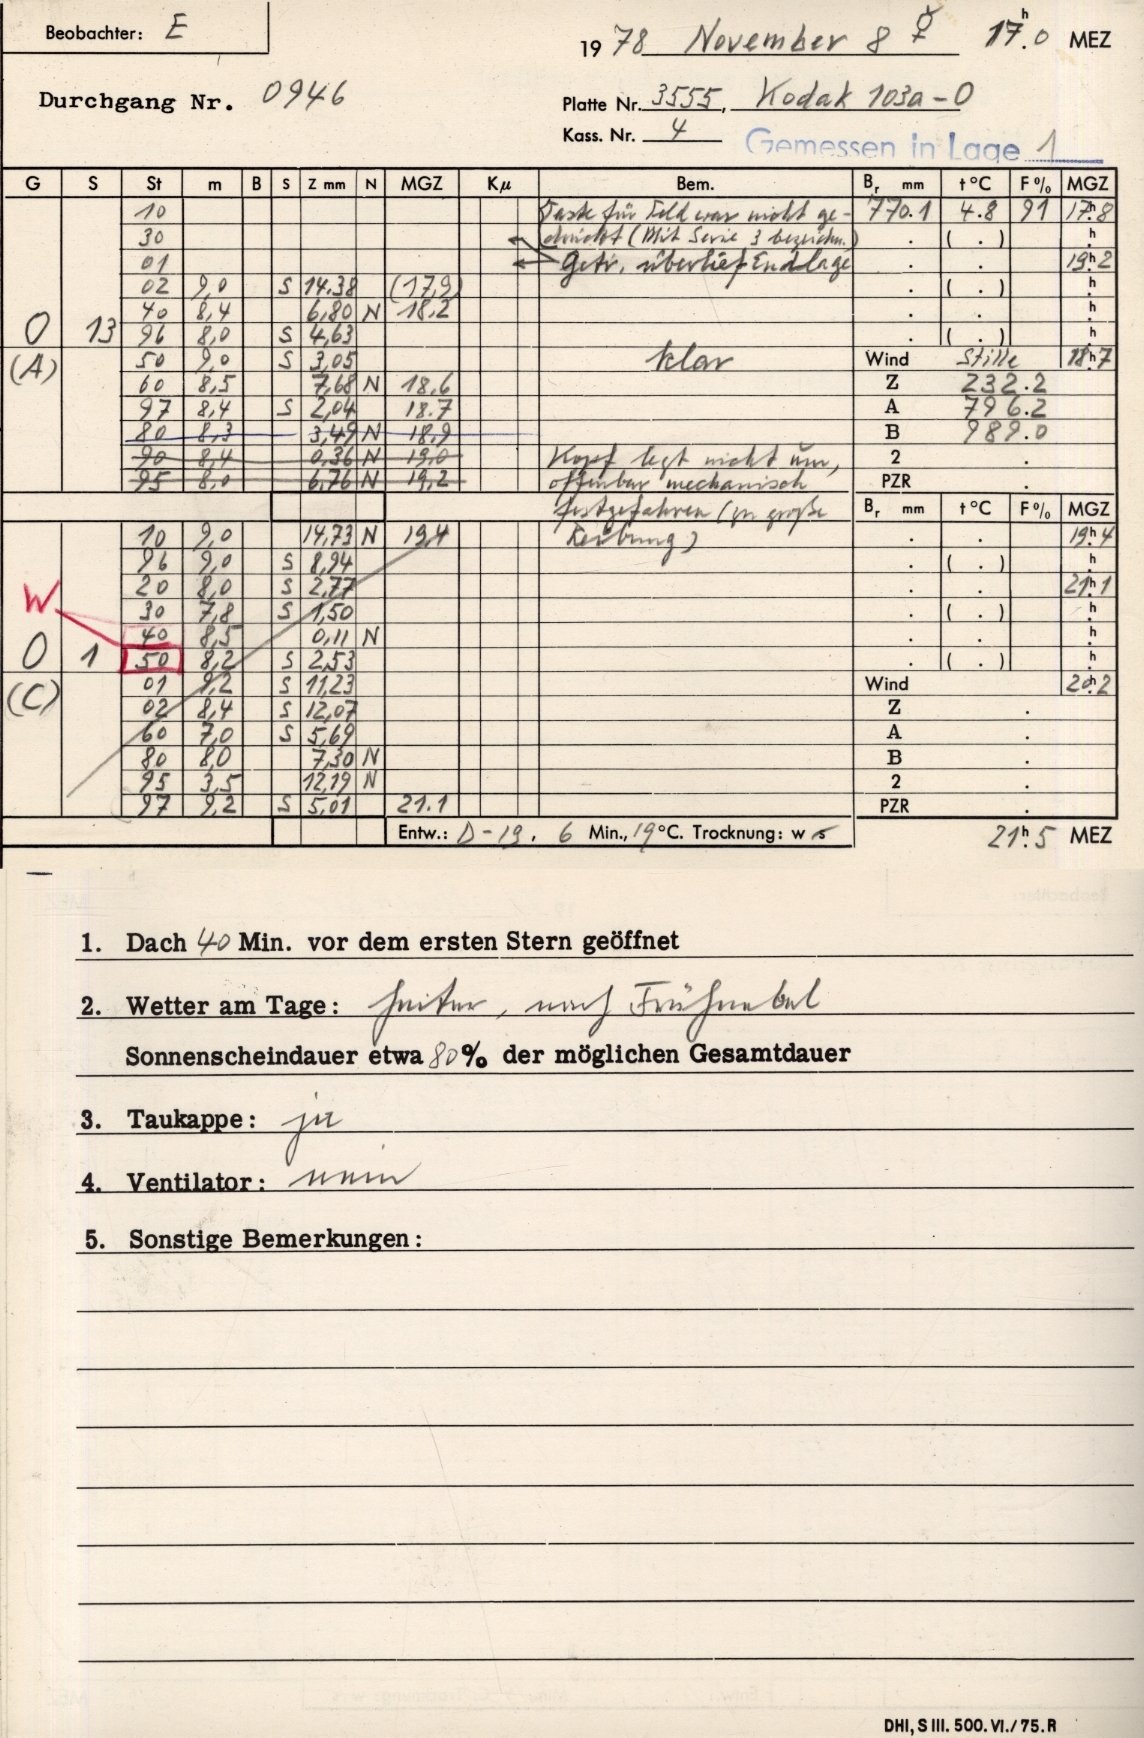 Beobachter: E
1978 November 8 ☿ 17ʰ.0 MEZ
Durchgang Nr. 0946
Platte Nr. 3555, Kodak 103a-O
Kass. Nr. 4 Gemessen in Lage 1
G S St m B S Z mm N MGZ Kμ Bem. Bᵣ mm t°C F% MGZ
10 Taste für Feld war nicht ge- 770.1 4.8 91 17ʰ.8
30 drückt (Mit Serie 3 bezeichn.) . ( . ) ʰ.
01 Getr. überlief Endlage . . 19ʰ.2
02 9,0 S 14,38 (17,9) . ( . ) ʰ.
40 8,4 6,80 N 18,2 . . ʰ.
O 13 96 8,0 S 4,63 . ( . ) ʰ.
(A) 50 9,0 S 3,05 klar Wind Stille 18ʰ.7
60 8,5 7,68 N 18,6 Z 232.2
97 8,4 S 2,04 18.7 A 796.2
80 8,3 3,49 N 18,9 B 989.0
90 8,4 0,36 N 19,0 Kopf legt nicht um, 2 .
95 8,0 6,76 N 19,2 offenbar mechanisch PZR .
festgefahren (zu große Bᵣ mm t°C F% MGZ
10 9,0 14,73 N 19,4 Reibung) . . 19ʰ.4
96 9,0 S 8,94 . ( . ) ʰ.
20 8,0 S 2,77 . . 21ʰ.1
W 30 7,8 S 1,50 . ( . ) ʰ.
40 8,5 0,11 N . . ʰ.
O 1 50 8,2 S 2,53 . ( . ) ʰ.
(C) 01 9,2 S 11,23 Wind 20ʰ.2
02 8,4 S 12,07 Z .
60 7,0 S 5,69 A .
80 8,0 7,30 N B .
95 3,5 12,19 N 2 .
97 9,2 S 5,01 21.1 PZR .
Entw.: D-19. 6 Min., 19°C. Trocknung: w s 21ʰ.5 MEZ
1. Dach 40 Min. vor dem ersten Stern geöffnet
2. Wetter am Tage: heiter, nach Frühnebel
Sonnenscheindauer etwa 80% der möglichen Gesamtdauer
3. Taukappe: ja
4. Ventilator: nein
5. Sonstige Bemerkungen:
DHI, S III. 500. VI./75. R